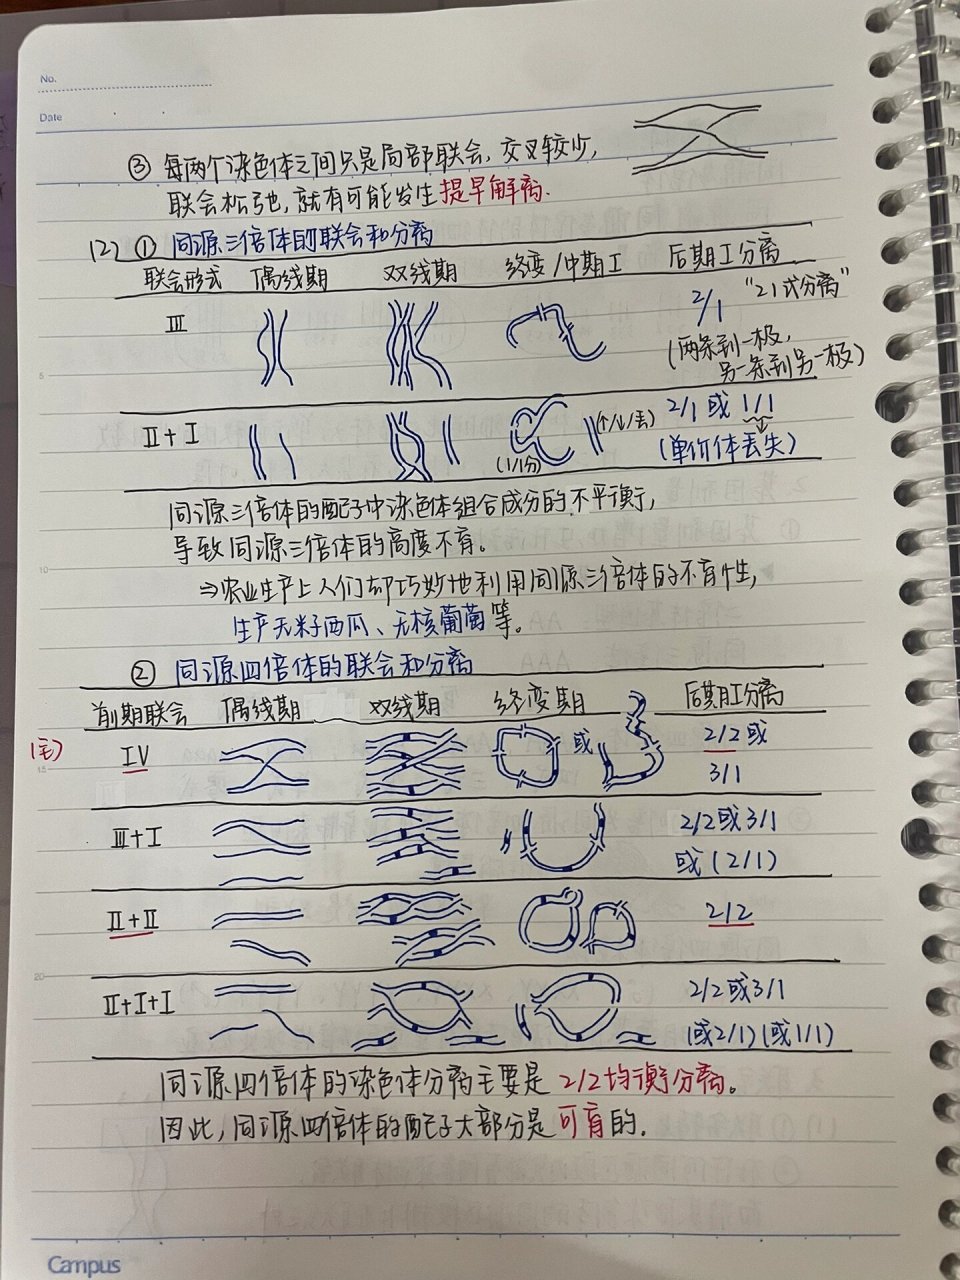 No.
Date
③ 每两个染色体之间只是局部联会,交叉较少,
联会松弛,就有可能发生提早解离.
(2) ① 同源三倍体的联会和分离
联会形式 偶线期 双线期 终变/中期I 后期I分离
III 2/1 "21式分离"
(两条到一极,
另一条到另一极)
II+I (1/1分) (↑/↓/丢) 2/1 或 1/1
(单价体丢失)
同源三倍体的配子中染色体组合成分的不平衡,
5
导致同源三倍体的高度不育。
10
⇒农业生产上人们却巧妙地利用同源三倍体的不育性,
生产无籽西瓜、无核葡萄等。
② 同源四倍体的联会和分离
前期联会 偶线期 双线期 终变期 后期I分离
IV 或 2/2或
15
3/1
III+I 2/2或3/1
或(2/1)
II+II 2/2
20
II+I+I 2/2或3/1
(或2/1)(或1/1)
同源四倍体的染色体分离主要是 2/2均衡分离。
因此,同源四倍体的配子大部分是可育的.
Campus